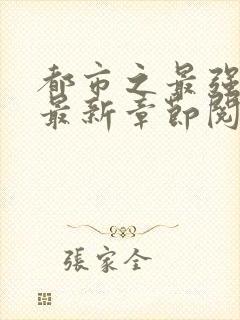 都市之最强
最新章節閱
張家全